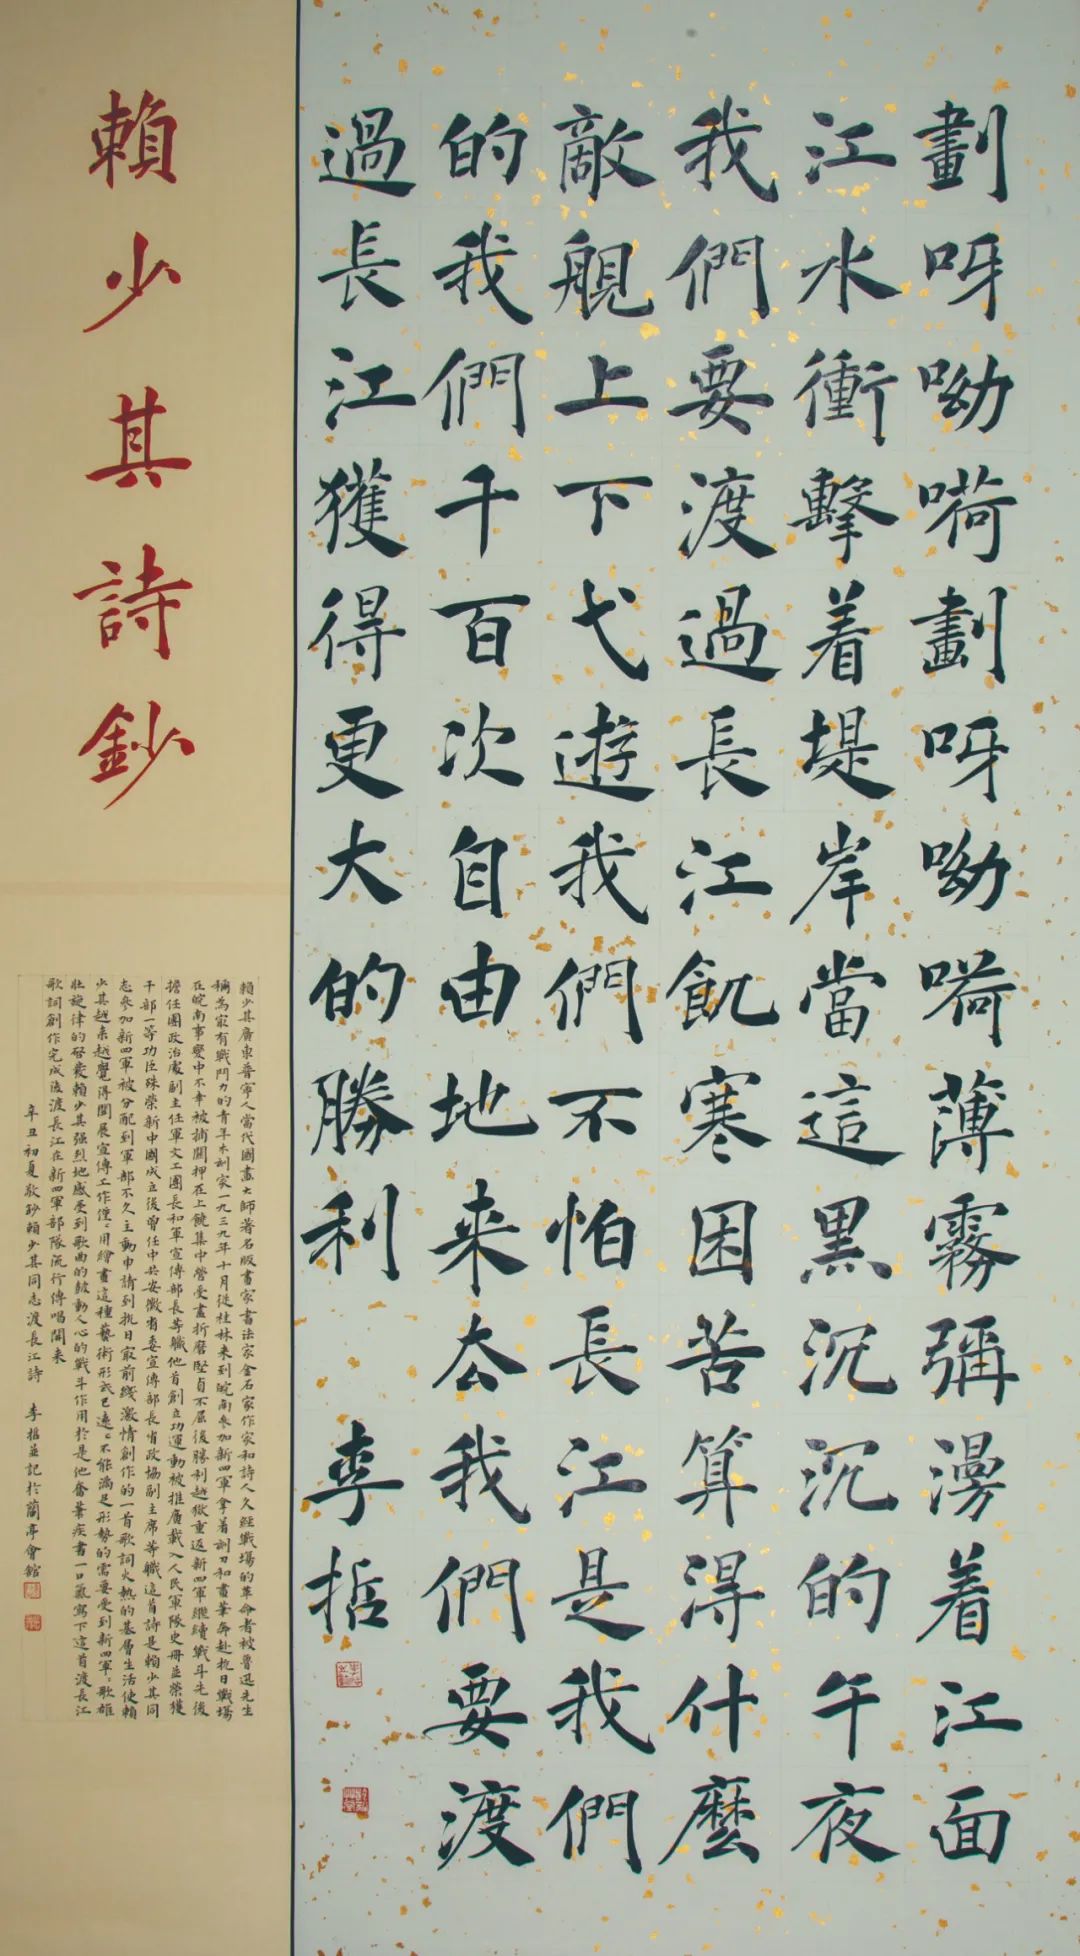 劃呀呦嗬劃呀呦嗬薄霧彌漫着江面
江水衝擊着堤岸當這黑沉沉的午夜
我們要渡過長江飢寒困苦算得什麼
敵覜上下弋遊我們不怕長江是我們
的我們千百次自由地来去我們要渡
過長江獲得更大的勝利 李哲
賴少其詩鈔
賴少其廣東普寧人當代國畫大師著名版畫家書法家金石家作家和詩人久經戰場的革命者被魯迅先生
稱為最有戰鬥力的青年木刻家一九三九年十月從桂林来到皖南參加新四軍拿着刻刀和畫筆奔赴抗日戰場
在皖南事變中不幸被捕關押在上饒集中營受盡折磨堅貞不屈後勝利越獄重返新四軍繼續戰斗先後
擔任團政治處副主任軍文工團長和軍宣傳部長等職他首創立功運動被推廣載入人民軍隊史冊並榮獲
干部一等功臣殊榮新中國成立後曾任中共安徽省委宣傳部長省政協副主席等職這首詩是賴少其同
志參加新四軍被分配到軍部不久主動申請到抗日最前綫激情創作的一首歌詞火熱的基層生活使賴
少其越来越覺得開展宣傳工作僅僅用繪畫這種藝術形式已遠遠不能滿足形勢的需要受到新四軍軍歌雄
壯旋律的啓發賴少其强烈地感受到歌曲的鼓動人心的戰斗作用於是他奮筆疾書一口氣寫下這首渡長江
歌詞創作完成後渡長江在新四軍部隊流行傳唱開来
辛丑初夏敬鈔賴少其同志渡長江詩 李哲並記於蘭亭會館